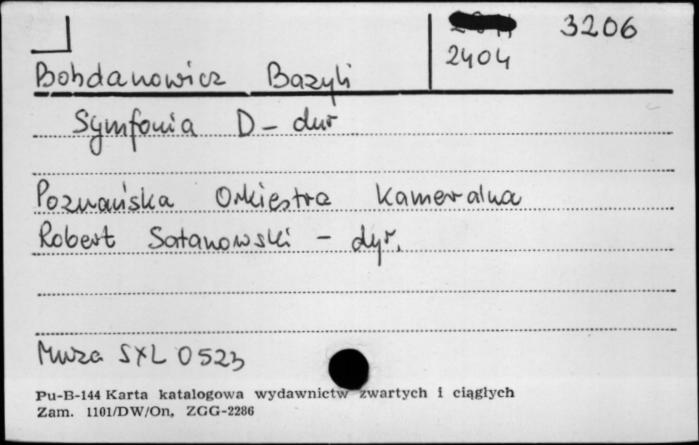 3206
2404
Bohdanowicz Bazyli
Symfonia D-dur
Poznańska Orkiestra Kameralna
Robert Satanowski - dyr.
Muza SXL 0523
Pu-B-144 Karta katalogowa wydawnictw zwartych i ciągłych
Zam. 1101/DW/On, ZGG-2286